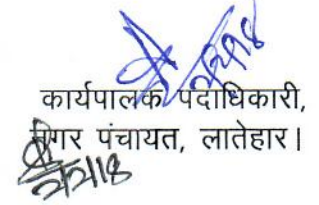 कार्यपालक पदाधिकारी,
नगर पंचायत, लातेहार।